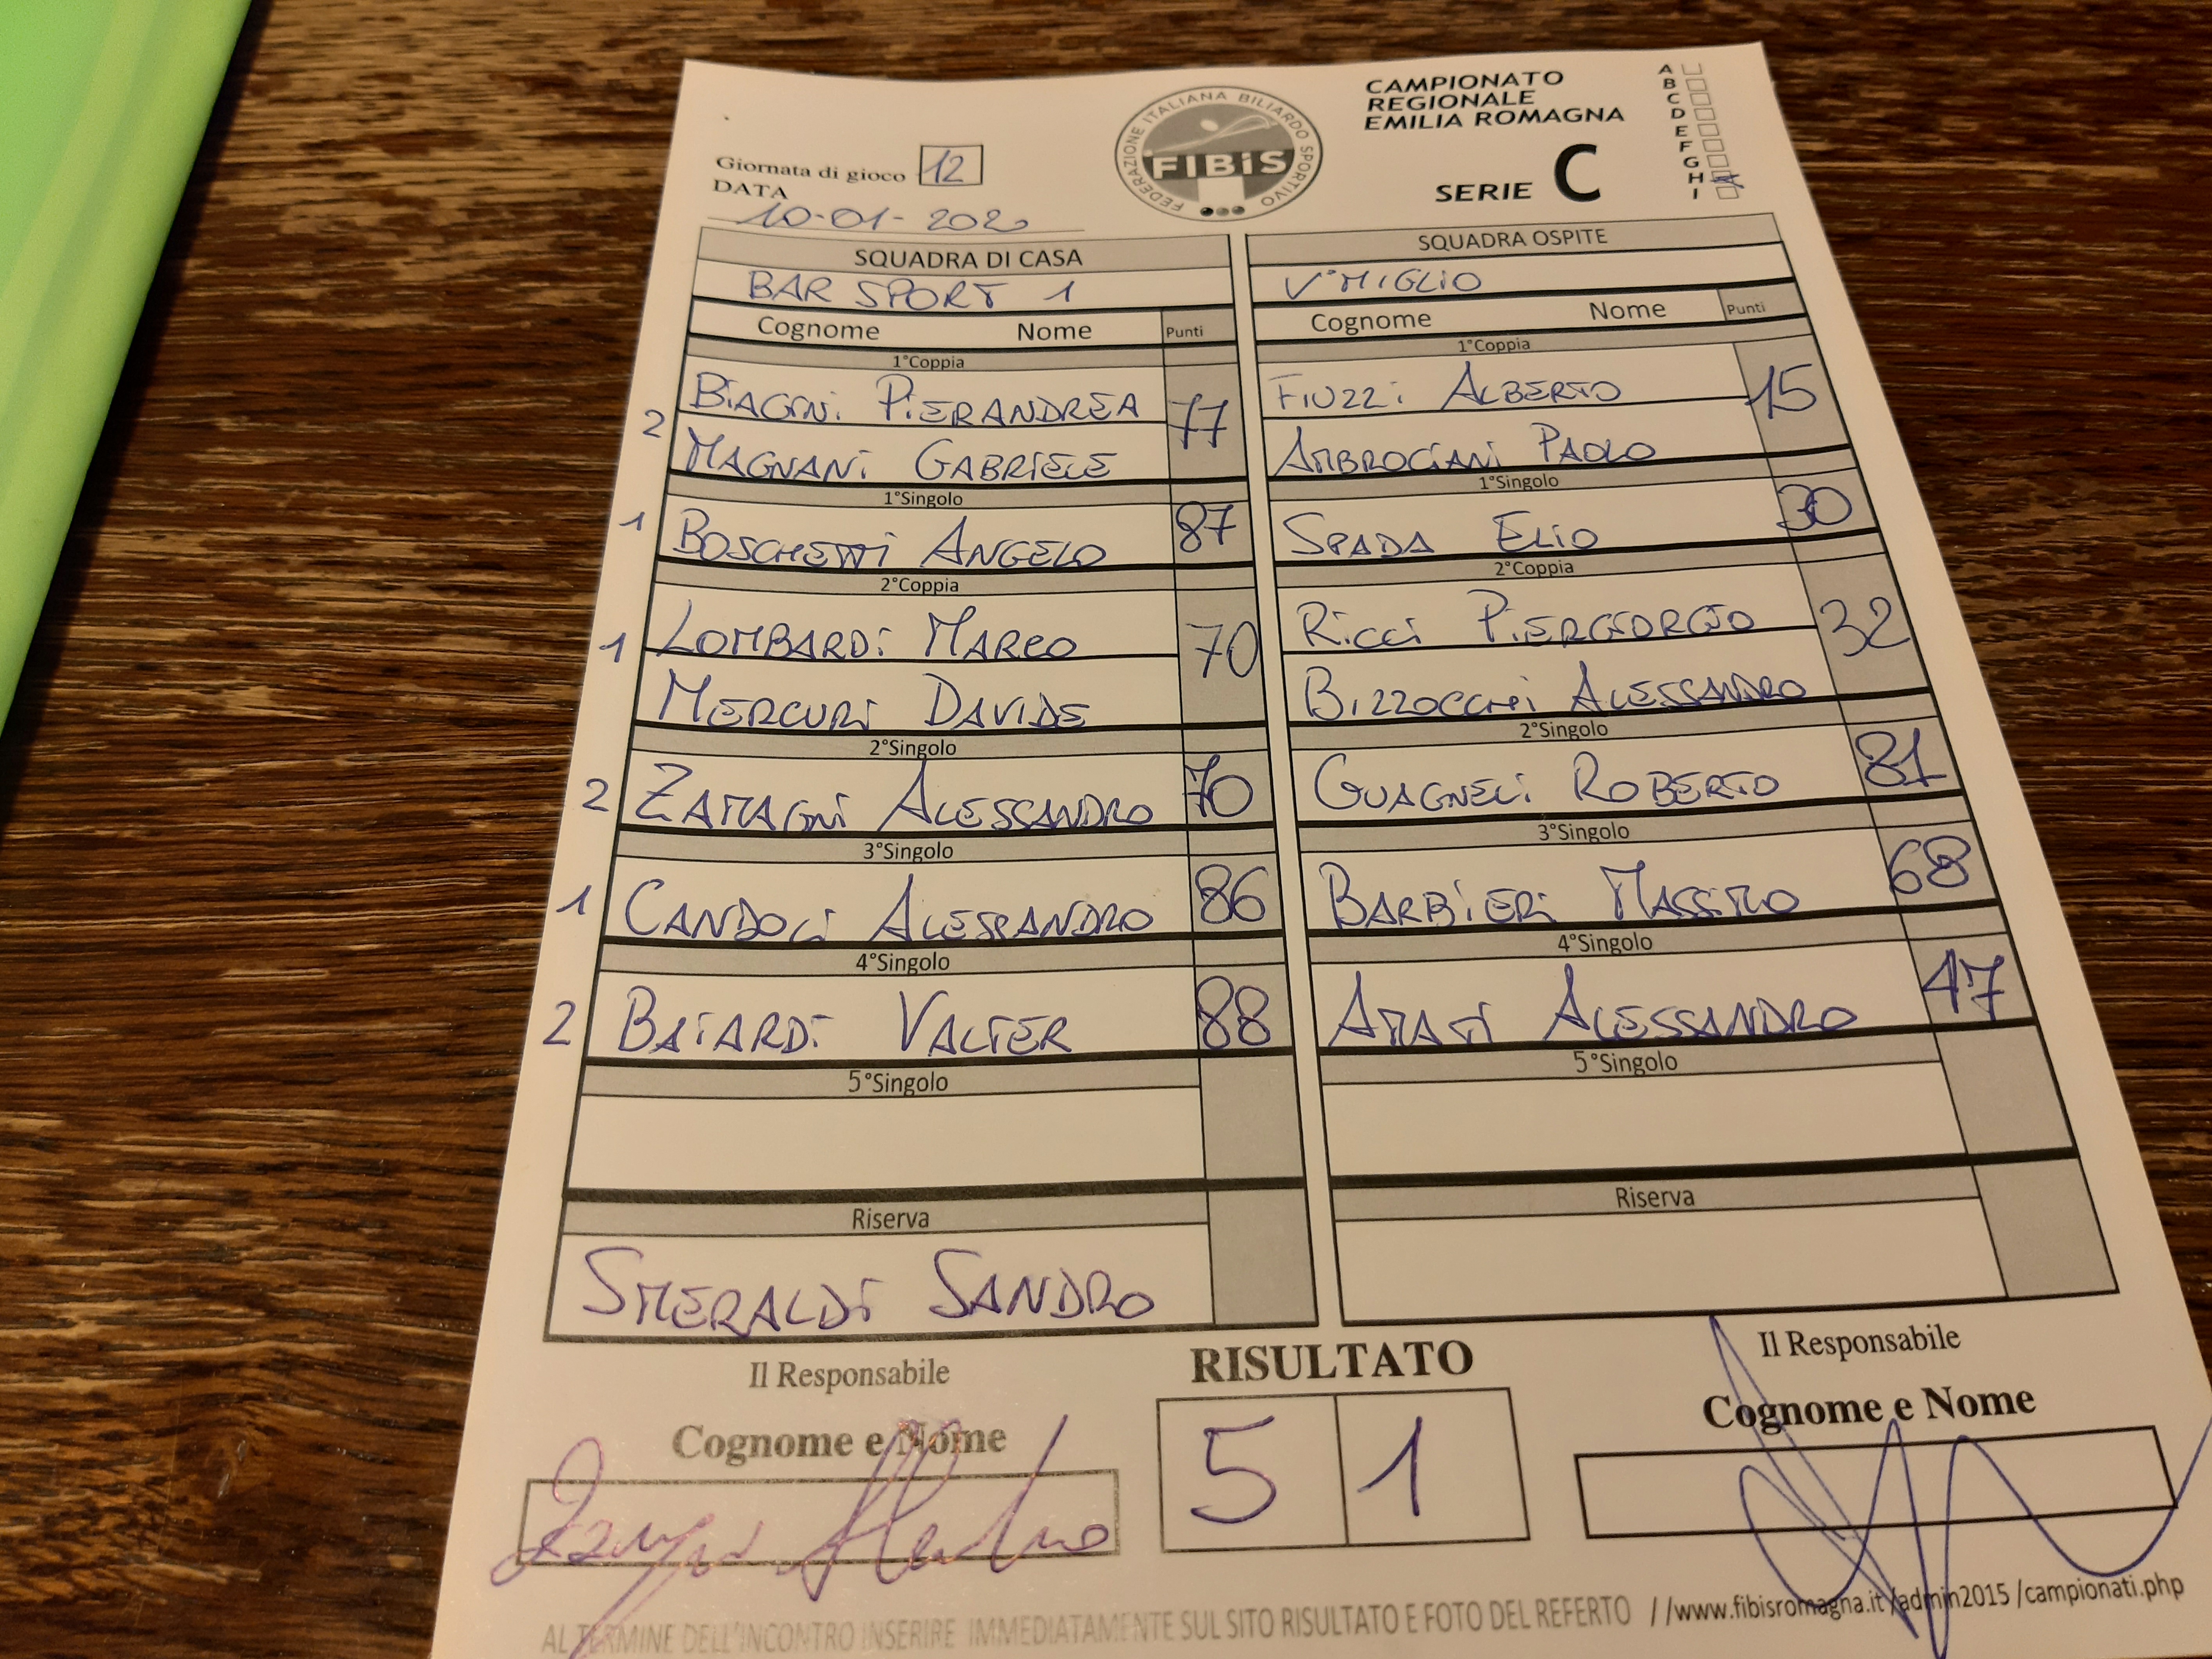 FEDERAZIONE ITALIANA BILIARDO SPORTIVO
FIBiS
CAMPIONATO
REGIONALE
EMILIA ROMAGNA
SERIE C
A
B
C
D
E
F
G
H
I
Giornata di gioco 12
DATA
10-01-2020
SQUADRA DI CASA
BAR SPORT 1
Cognome Nome Punti
1°Coppia
2 BIAGINI PIERANDREA 77
MAGNANI GABRIELE
1°Singolo
1 BOSCHETTI ANGELO 87
2°Coppia
1 LOMBARDI MARCO 70
MERCURI DAVIDE
2°Singolo
2 ZAMAGNI ALESSANDRO 70
3°Singolo
1 CANDOLI ALESSANDRO 86
4°Singolo
2 BAIARDI VALTER 88
5°Singolo
Riserva
SMERALDI SANDRO
SQUADRA OSPITE
V°MIGLIO
Cognome Nome Punti
1°Coppia
FIUZZI ALBERTO 15
AMBROGIANI PAOLO
1°Singolo
SPADA ELIO 30
2°Coppia
RICCI PIERGIORGIO 32
BIZZOCCHI ALESSANDRO
2°Singolo
GUAGNELI ROBERTO 81
3°Singolo
BARBIERI MASSIMO 68
4°Singolo
AMATI ALESSANDRO 47
5°Singolo
Riserva
Il Responsabile
Cognome e Nome
RISULTATO
5 1
Il Responsabile
Cognome e Nome
AL TERMINE DELL'INCONTRO INSERIRE IMMEDIATAMENTE SUL SITO RISULTATO E FOTO DEL REFERTO //www.fibisromagna.it/admin2015/campionati.php